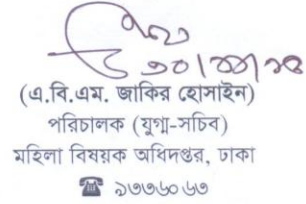 (এ.বি.এম. জাকির হোসাইন)
পরিচালক (যুগ্ম-সচিব)
মহিলা বিষয়ক অধিদপ্তর, ঢাকা
☎ ৯৩৩৬০৬৩